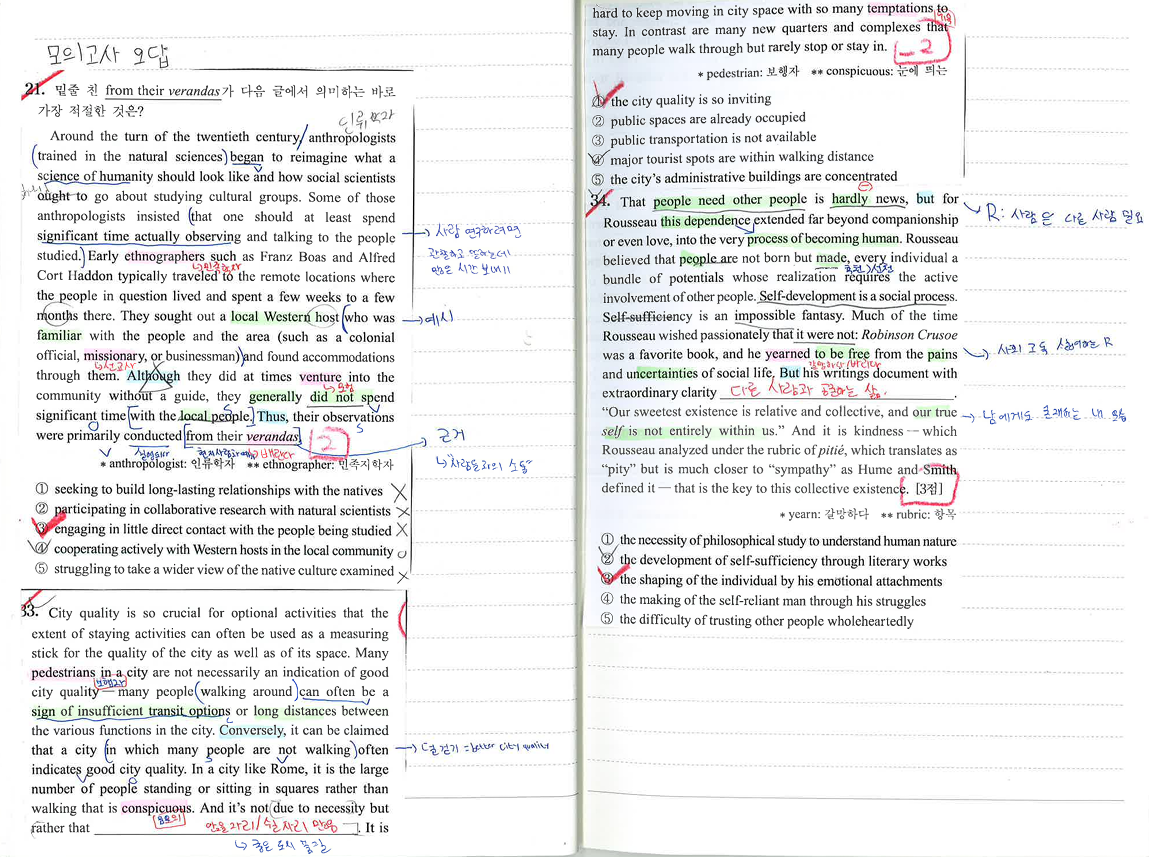 모의고사 오답
21. 밑줄 친 from their verandas가 다음 글에서 의미하는 바로
가장 적절한 것은?
인류학자
Around the turn of the twentieth century, anthropologists
trained in the natural sciences began to reimagine what a
science of humanity should look like and how social scientists
ought to go about studying cultural groups. Some of those
anthropologists insisted that one should at least spend
significant time actually observing and talking to the people
studied. Early ethnographers such as Franz Boas and Alfred
민족학자
Cort Haddon typically traveled to the remote locations where
the people in question lived and spent a few weeks to a few
months there. They sought out a local Western host who was
familiar with the people and the area (such as a colonial
official, missionary, or businessman) and found accommodations
선교사
through them. Although they did at times venture into the
모험
community without a guide, they generally did not spend
significant time with the local people. Thus, their observations
were primarily conducted from their verandas.
2
* anthropologist: 인류학자 ** ethnographer: 민족지학자
① seeking to build long-lasting relationships with the natives
② participating in collaborative research with natural scientists
③ engaging in little direct contact with the people being studied
④ cooperating actively with Western hosts in the local community
⑤ struggling to take a wider view of the native culture examined
→ 사람 연구하려면
관찰하고 말하는데
많은 시간 보내라
→ 예시
근거
33. City quality is so crucial for optional activities that the
extent of staying activities can often be used as a measuring
stick for the quality of the city as well as of its space. Many
pedestrians in a city are not necessarily an indication of good
보행자
city quality — many people walking around can often be a
sign of insufficient transit options or long distances between
the various functions in the city. Conversely, it can be claimed
that a city in which many people are not walking often
→ 덜 걷기 = better city quality
indicates good city quality. In a city like Rome, it is the large
number of people standing or sitting in squares rather than
walking that is conspicuous. And it's not due to necessity but
rather that . It is
앉을자리/쉴자리 많음
→ 좋은 도시 품질
hard to keep moving in city space with so many temptations to
유혹
stay. In contrast are many new quarters and complexes that
many people walk through but rarely stop or stay in.
-2
* pedestrian: 보행자 ** conspicuous: 눈에 띄는
① the city quality is so inviting
② public spaces are already occupied
③ public transportation is not available
④ major tourist spots are within walking distance
⑤ the city's administrative buildings are concentrated
34. That people need other people is hardly news, but for
→ R: 사람은 다른 사람 필요
Rousseau this dependence extended far beyond companionship
or even love, into the very process of becoming human. Rousseau
believed that people are not born but made, every individual a
bundle of potentials whose realization requires the active
involvement of other people. Self-development is a social process.
Self-sufficiency is an impossible fantasy. Much of the time
Rousseau wished passionately that it were not: Robinson Crusoe
was a favorite book, and he yearned to be free from the pains
→ 사회 고독 싫어하는 R
and uncertainties of social life. But his writings document with
extraordinary clarity .
"Our sweetest existence is relative and collective, and our true
→ 남에게도 존재하는 내 모습
self is not entirely within us." And it is kindness — which
Rousseau analyzed under the rubric of pitié, which translates as
"pity" but is much closer to "sympathy" as Hume and Smith
defined it — that is the key to this collective existence. [3점]
* yearn: 갈망하다 ** rubric: 항목
① the necessity of philosophical study to understand human nature
② the development of self-sufficiency through literary works
③ the shaping of the individual by his emotional attachments
④ the making of the self-reliant man through his struggles
⑤ the difficulty of trusting other people wholeheartedly